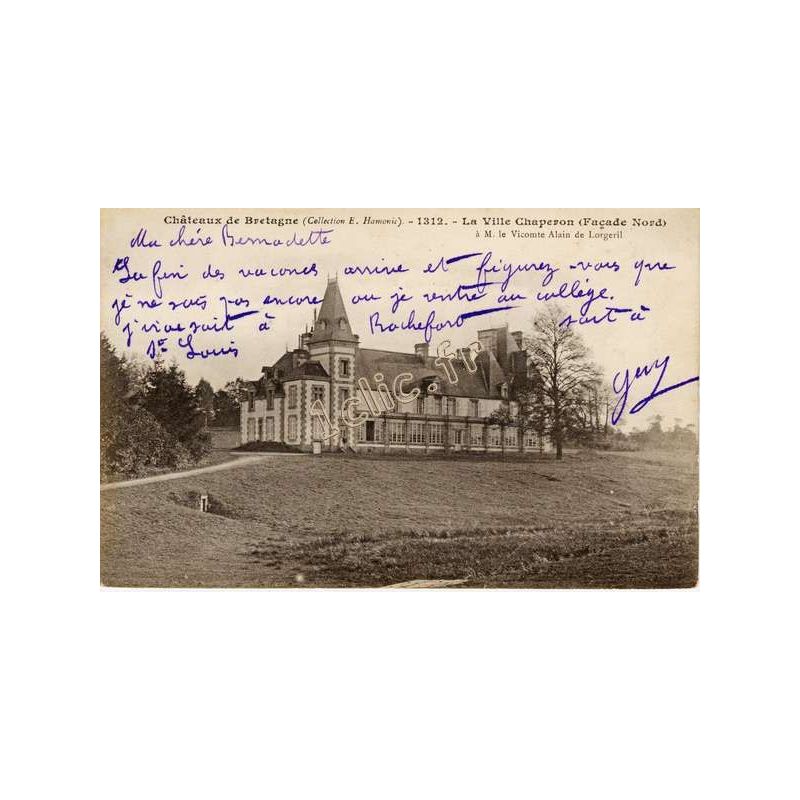 Châteaux de Bretagne (Collection E. Hamonic). - 1312. - La Ville Chaperon (Façade Nord)
à M. le Vicomte Alain de Lorgeril
Ma chère Bernadette
La fin des vacances arrive et figurez-vous que
je ne sais pas encore où je rentre au collége.
j'irai soit à Rochefort soit à
St Louis
Guy
1clic.fr